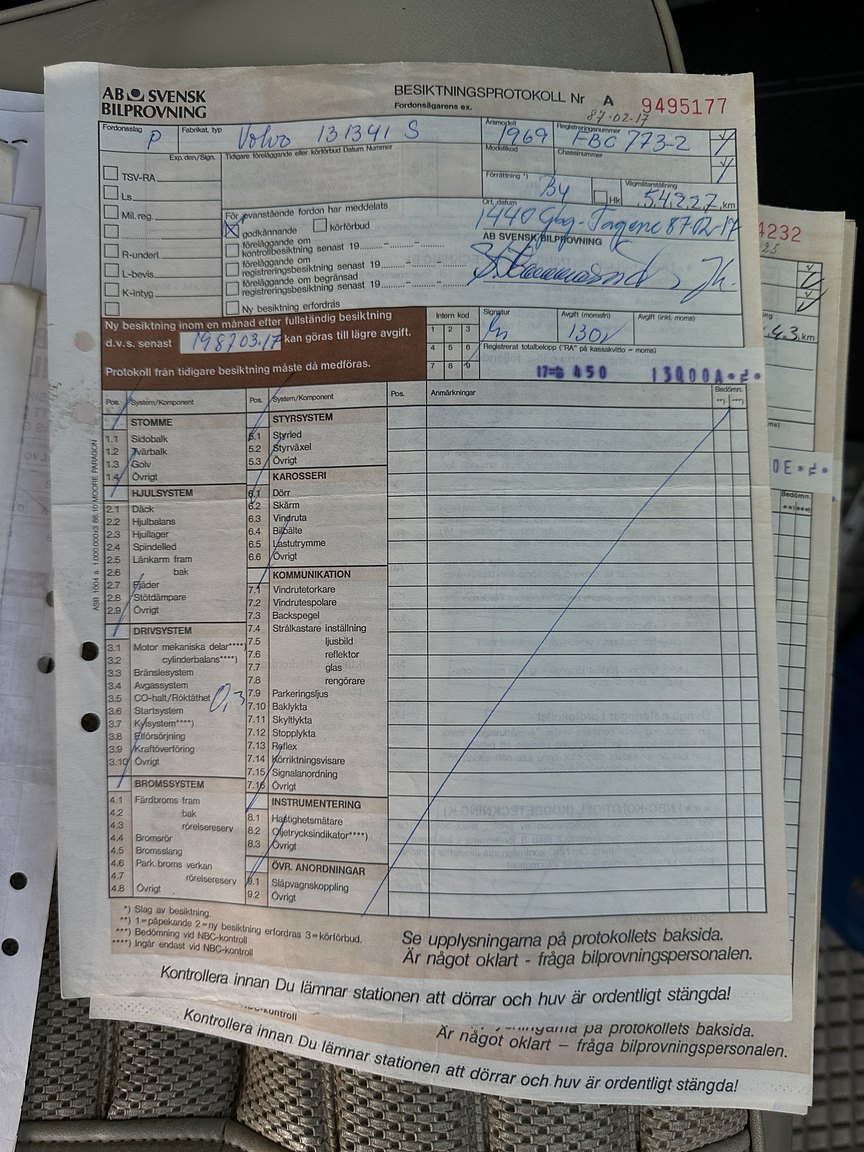 AB SVENSK
BILPROVNING
BESIKTNINGSPROTOKOLL Nr A 9495177
Fordonsägarens ex.
87-02-17
Fordonsslag
P
Fabrikat, typ
Volvo 131341 S
Årsmodell
1969
Registreringsnummer
FBC 773-2
Modellkod
Chassinummer
Exp.den/Sign.
Tidigare föreläggande eller körförbud Datum Nummer
TSV-RA
Ls
Mil.reg.
R-underl.
L-bevis
K-intyg
Förrättning *)
By
Hk
Vägmätarställning
54227 km
Ort, datum
1440 Gbg- 87-02-17
AB SVENSK BILPROVNING
För ovanstående fordon har meddelats
godkännande
körförbud
föreläggande om
kontrollbesiktning senast 19
föreläggande om
registreringsbesiktning senast 19
föreläggande om begränsad
registreringsbesiktning senast 19
Ny besiktning erfordras
Ny besiktning inom en månad efter fullständig besiktning
d.v.s. senast 198703.17 kan göras till lägre avgift.
Protokoll från tidigare besiktning måste då medföras.
Intern kod
1 2 3
4 5 6
7 8 9
Signatur
Avgift (momsfri)
130,
Avgift (inkl. moms)
Registrerat totalbelopp ("RA" på kassakvitto – moms)
17=6 450 13000A
Pos. System/Komponent
STOMME
1.1 Sidobalk
1.2 Tvärbalk
1.3 Golv
1.4 Övrigt
HJULSYSTEM
2.1 Däck
2.2 Hjulbalans
2.3 Hjullager
2.4 Spindelled
2.5 Länkarm fram
2.6 bak
2.7 Fjäder
2.8 Stötdämpare
2.9 Övrigt
DRIVSYSTEM
3.1 Motor mekaniska delar****)
3.2 cylinderbalans****)
3.3 Bränslesystem
3.4 Avgassystem
3.5 CO-halt/Röktäthet 0,3
3.6 Startsystem
3.7 Kylsystem****)
3.8 Elförsörjning
3.9 Kraftöverföring
3.10 Övrigt
BROMSSYSTEM
4.1 Färdbroms fram
4.2 bak
4.3 rörelsereserv
4.4 Bromsrör
4.5 Bromsslang
4.6 Park.broms verkan
4.7 rörelsereserv
4.8 Övrigt
Pos. System/Komponent
STYRSYSTEM
5.1 Styrled
5.2 Styrväxel
5.3 Övrigt
KAROSSERI
6.1 Dörr
6.2 Skärm
6.3 Vindruta
6.4 Bilbälte
6.5 Lastutrymme
6.6 Övrigt
KOMMUNIKATION
7.1 Vindrutetorkare
7.2 Vindrutespolare
7.3 Backspegel
7.4 Strålkastare inställning
7.5 ljusbild
7.6 reflektor
7.7 glas
7.8 rengörare
7.9 Parkeringsljus
7.10 Baklykta
7.11 Skyltlykta
7.12 Stopplykta
7.13 Reflex
7.14 Körriktningsvisare
7.15 Signalanordning
7.16 Övrigt
INSTRUMENTERING
8.1 Hastighetsmätare
8.2 Oljetrycksindikator****)
8.3 Övrigt
ÖVR. ANORDNINGAR
9.1 Släpvagnskoppling
9.2 Övrigt
Pos.
Anmärkningar
Bedömn.
**) ***)
*) Slag av besiktning.
**) 1=påpekande 2=ny besiktning erfordras 3=körförbud.
***) Bedömning vid NBC-kontroll
****) Ingår endast vid NBC-kontroll
Se upplysningarna på protokollets baksida.
Är något oklart - fråga bilprovningspersonalen.
Kontrollera innan Du lämnar stationen att dörrar och huv är ordentligt stängda!
ASB 1004 a. 1.000.000x3 86.10 MOORE PARAGON
4232
km
Bedömn.
**) ***)
NBC-kontroll
på protokollets baksida.
Är något oklart – fråga bilprovningspersonalen.
Kontrollera innan Du lämnar stationen att dörrar och huv är ordentligt stängda!